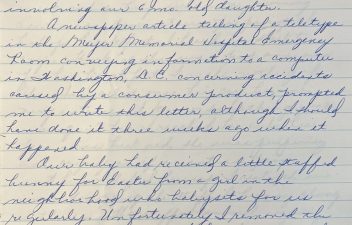 involving our 6 mo. old daughter.
A newspaper article telling of a teletype
in the Meyer Memorial Hospital Emergency
Room conveying information to a computer
in Washington, D.C. concerning accidents
caused by a consumer product, prompted
me to write this letter, although I should
have done it three weeks ago when it
happened.
Our baby had received a little stuffed
bunny for Easter from a girl in the
neighborhood who babysits for us
regularly. Unfortunately I removed the